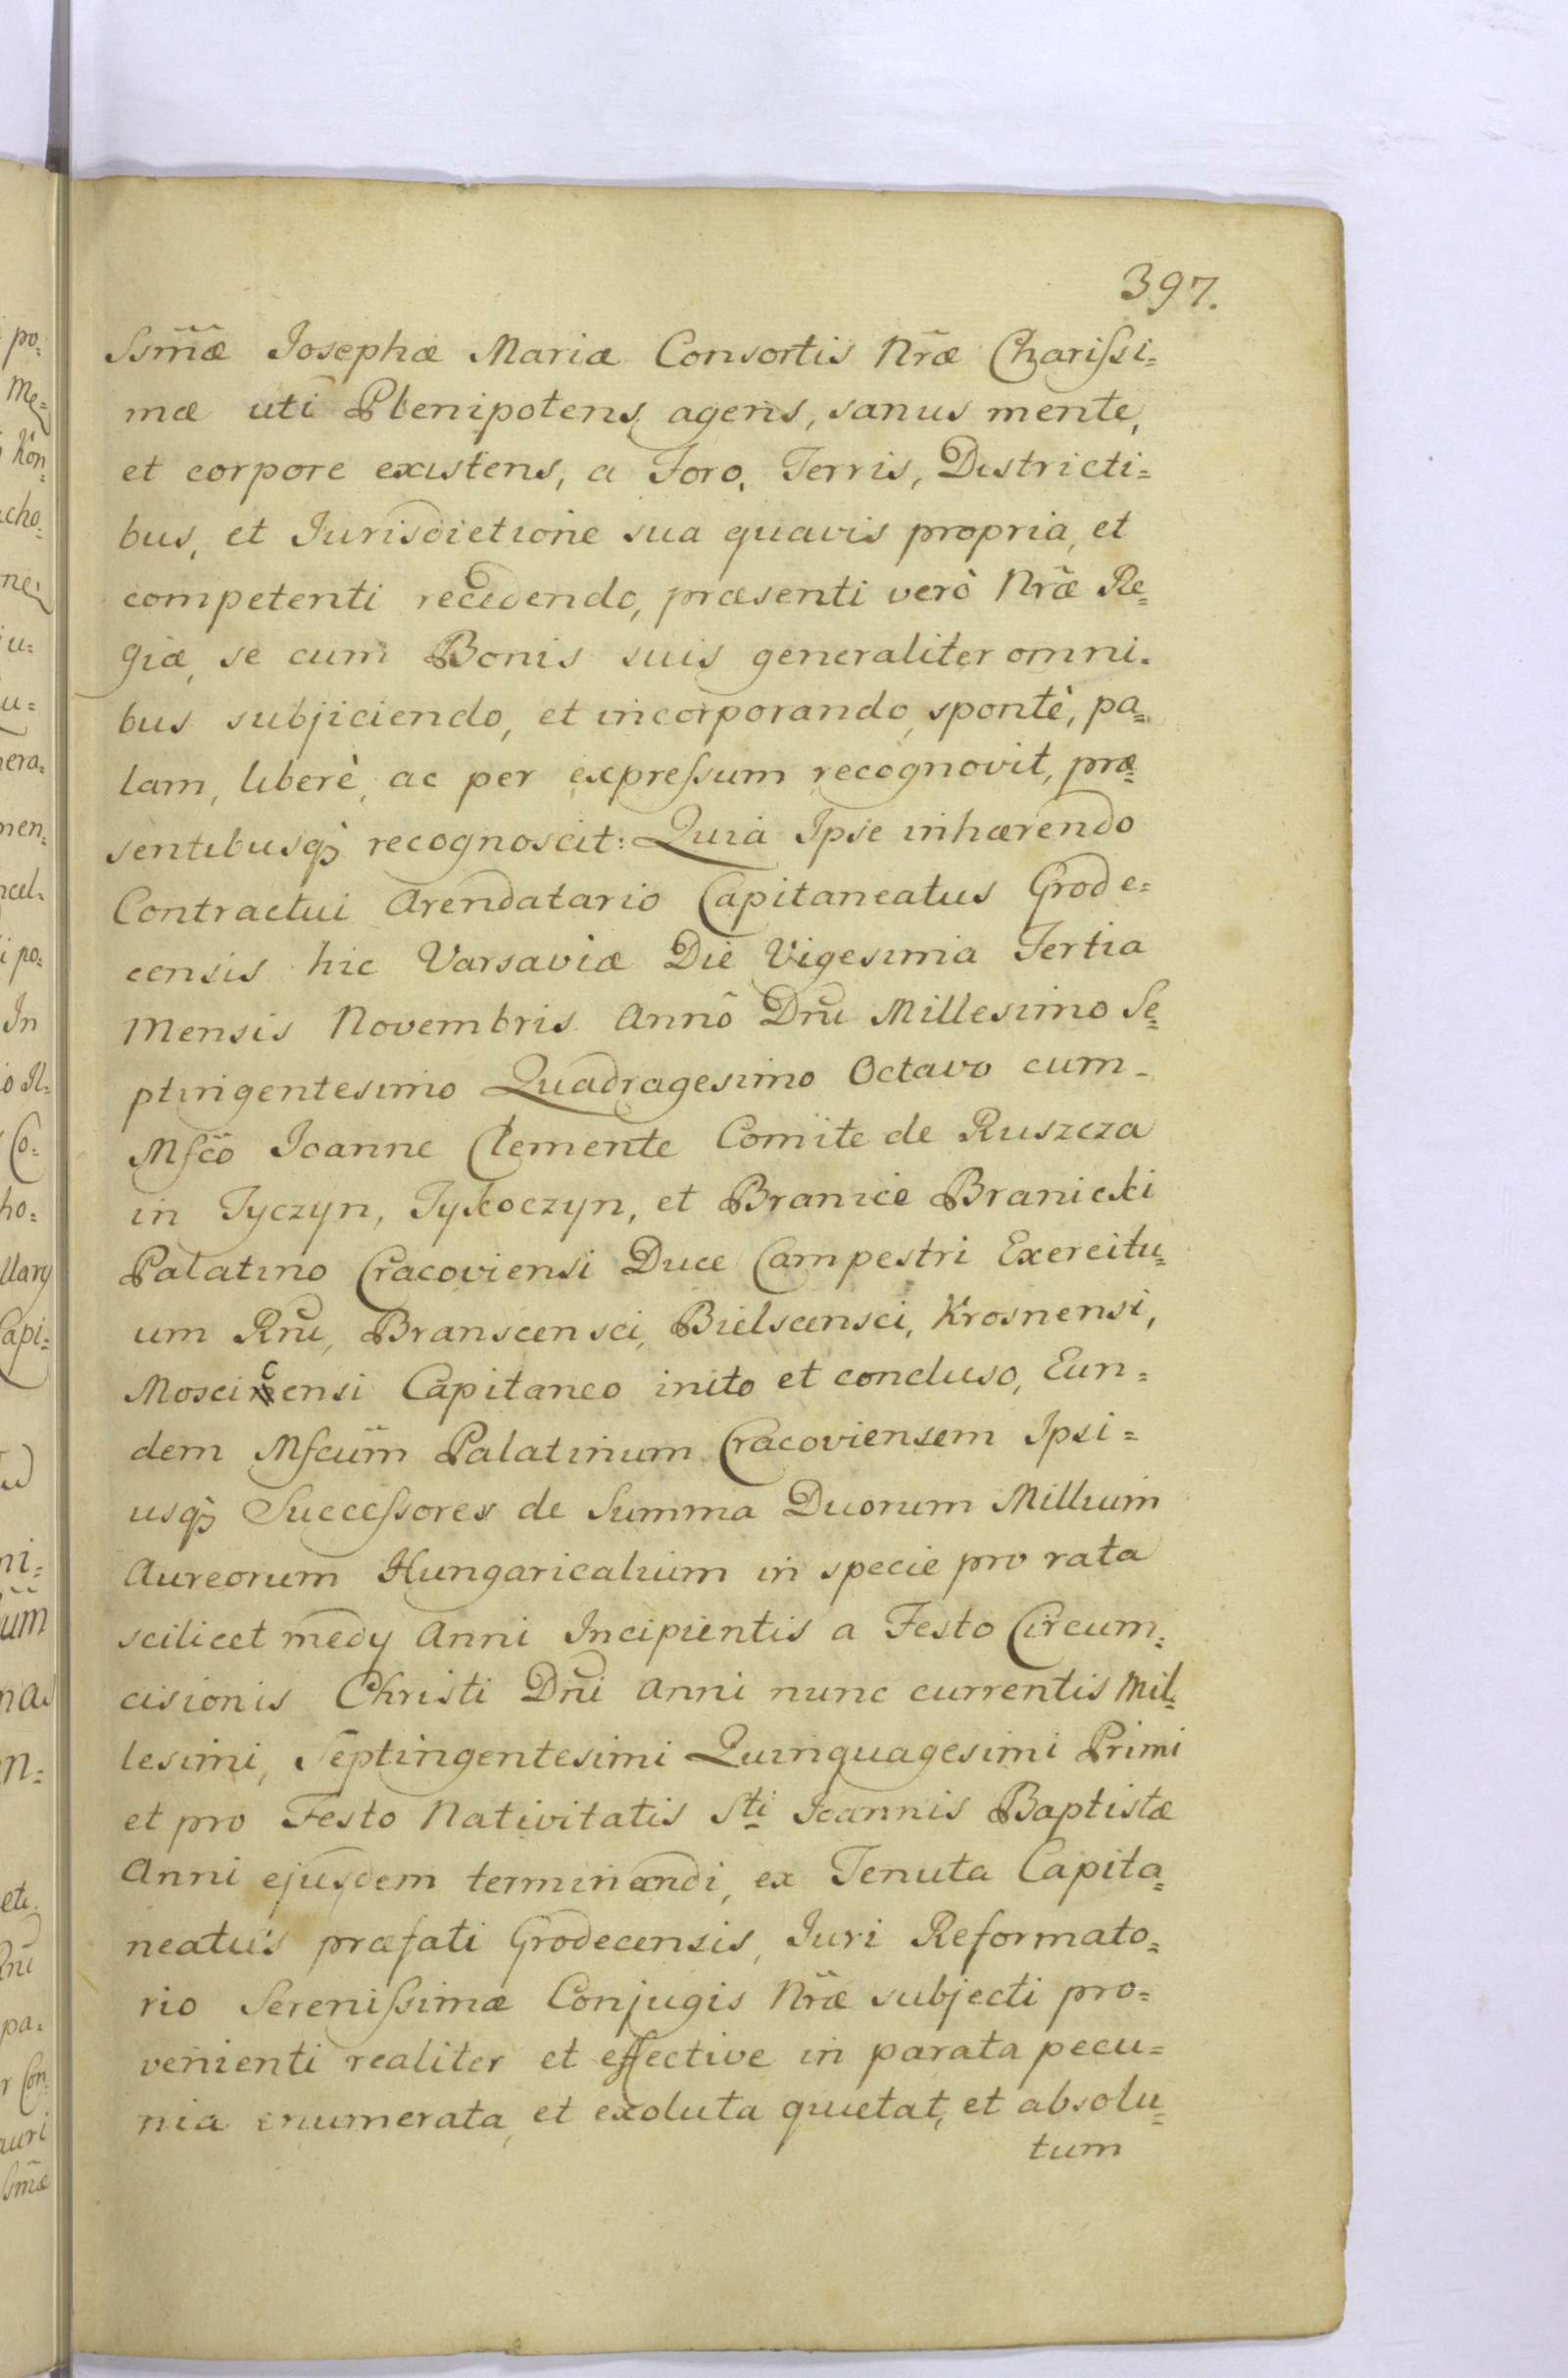 397.
Ssm̃æ Josephæ Mariæ Consortis Nr̃æ Charissi=
mæ uti Plenipotens agens, sanus mente,
et corpore existens, a Foro, Terris, Districti=
bus, et Jurisdictione sua quavis propria, et
competenti recedendo, præsenti verò Nr̃æ Re=
giæ, se cum Bonis suis generaliter omni=
bus subjiciendo, et incorporando, spontè, pa=
lam, liberè, ac per expressum recognovit, præ=
sentibusq; recognoscit: Quia Ipse inhærendo
Contractui Arendatario Capitaneatus Grode=
censis hic Varsaviæ Die Vigesima Tertia
Mensis Novembris Annõ Dñi Millesimo Se=
ptingentesimo Quadragesimo Octavo cum
Mfc̃o Joanne Clemente Comite de Ruszcza
in Tyczyn, Tykoczyn, et Branice Branicki
Palatino Cracoviensi Duce Campestri Exercitu=
um Rñi, Branscensci, Bielscensci, Krosnensi,
Moscicensi Capitaneo inito et concluso, Eun=
dem Mfcũm Palatinum Cracoviensem Ipsi=
usq; Successores de Summa Duorum Millium
Aureorum Hungaricalium in specie pro rata
scilicet medy Anni Incipientis a Festo Circum=
cisionis Christi Dñi Anni nunc currentis Mil=
lesimi, Septingentesimi Quinquagesimi Primi
et pro Festo Nativitatis Sti Joannis Baptistæ
Anni ejusdem terminandi, ex Tenuta Capita=
neatus præfati Grodecensis, Juri Reformato=
rio Serenissimæ Conjugis Nr̃æ subjecti pro=
venienti realiter et effective in parata pecu=
nia enumerata, et exoluta quietat, et absolu=
tum